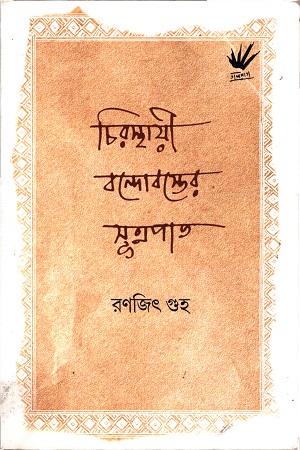 তালপাতা
চিরস্থায়ী
বন্দোবস্তের
সূত্রপাত
রণজিৎ গুহ